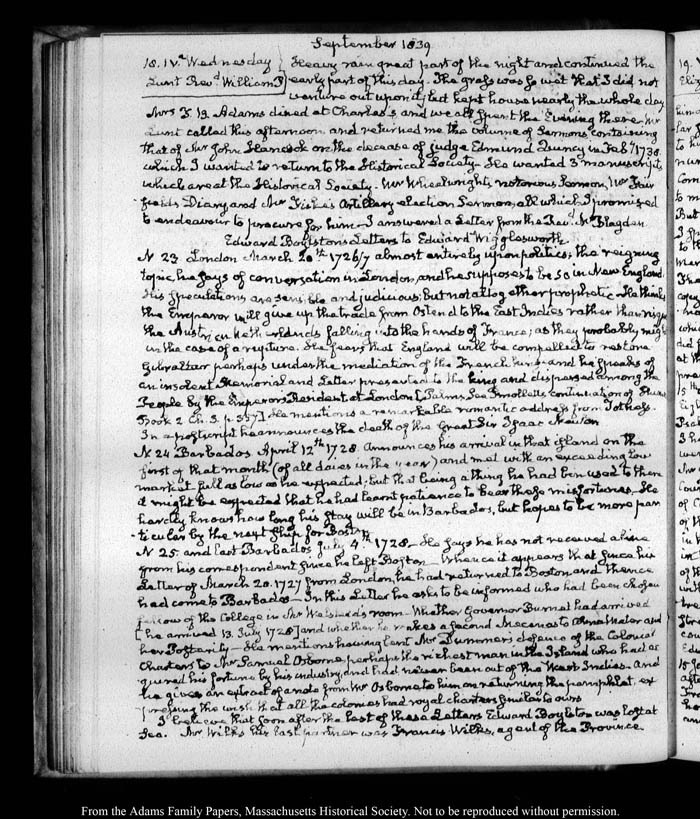 September 1839
18. IV. Wednesday
Lunt Rev.d William P
Heavy rain great part of the night and continued the
early part of this day. The grass was so wet that I did not
venture out upon it, but kept house nearly the whole day
Mrs J. Q. Adams dined at Charles's and we all spent the Evening there. Mr
Lunt called this afternoon, and returned me the volume of Sermons containing
that of Mr John Hancock on the decease of judge Edmund Quincy in Feb.y 1738.
which I wanted to return to the Historical Society. He wanted 3 manuscripts
which are at the Historical Society. Mr Wheelwright's notorious Sermon, Mr Fair
fields Diary, and Mr Fiske's Artillery election Sermon, all which I promised
to endeavour to procure for him. I answered a Letter from the Rev.d Mr Blagden
Edward Boylston's Letters to Edward Wigglesworth.
N 23. London March 20.th 1726/7 almost entirely upon politics; the reigning
topic he says of conversation in London, and he supposes to be so in New England.
His speculations are sensible and judicious; but not altogether prophetic. He thinks
the Emperor will give up the trade from Ostend to the East Indies rather than risque
the Austrian Netherlands falling into the hands of France; as they probably might
in the case of a rupture. He fears that England will be compelled to restore
Gibraltar perhaps under the mediation of the French king and he speaks of
an insolent Memorial and Letter presented to the king and dispersed among the
People by the Emperors Resident at London [Palms. See Smolletts continuation of Hume
Book 2 Ch. 3. p. 557] He mentions a remarkable romantic address from Totness.
In a postscript he announces the death of the Great Sir Isaac Newton
N 24 Barbados April 12.th 1728. Announces his arrival in that island on the
first of that month (of all days in the year) and met with an exceeding low
market full as low as he expected; but that being a thing he had been used to there
it might be expected that he had learnt patience to bear those misfortunes. He
hardly knows how long his stay will be in Barbados, but hopes to be more par
ticular by the next ship for Boston
N 25. and last Barbados July 4.th 1728. He says he has not received a line
from his correspondent since he left Boston. Whence it appears that since his
Letter of March 20. 1727 from London, he had returned to Boston and thence
had come to Barbados. In this Letter he asks to be informed who had been chosen
fellow of the College in Mr Welsteed's room. Whether Governor Burnet had arrived
[he arrived 13. July 1728] and whether he makes a second Mecenas to Alma Mater and
her Posterity. He mentions having lent Mr Dummer's defence of the Colonial
Charters to Mr Samuel Osborne, perhaps the richest man in the Island who had ac
quired his fortune by his industry, and had never been out of the West Indies. And
he gives an extract of a note from Mr Osborne to him on returning the pamphlet, ex
pressing the wish that all the colonies had royal charters similar to ours
I believe that soon after the last of these Letters Edward Boylston was lost at
Sea. Mr Wilks his last partner was Francis Wilks, agent of the Province
From the Adams Family Papers, Massachusetts Historical Society. Not to be reproduced without permission.